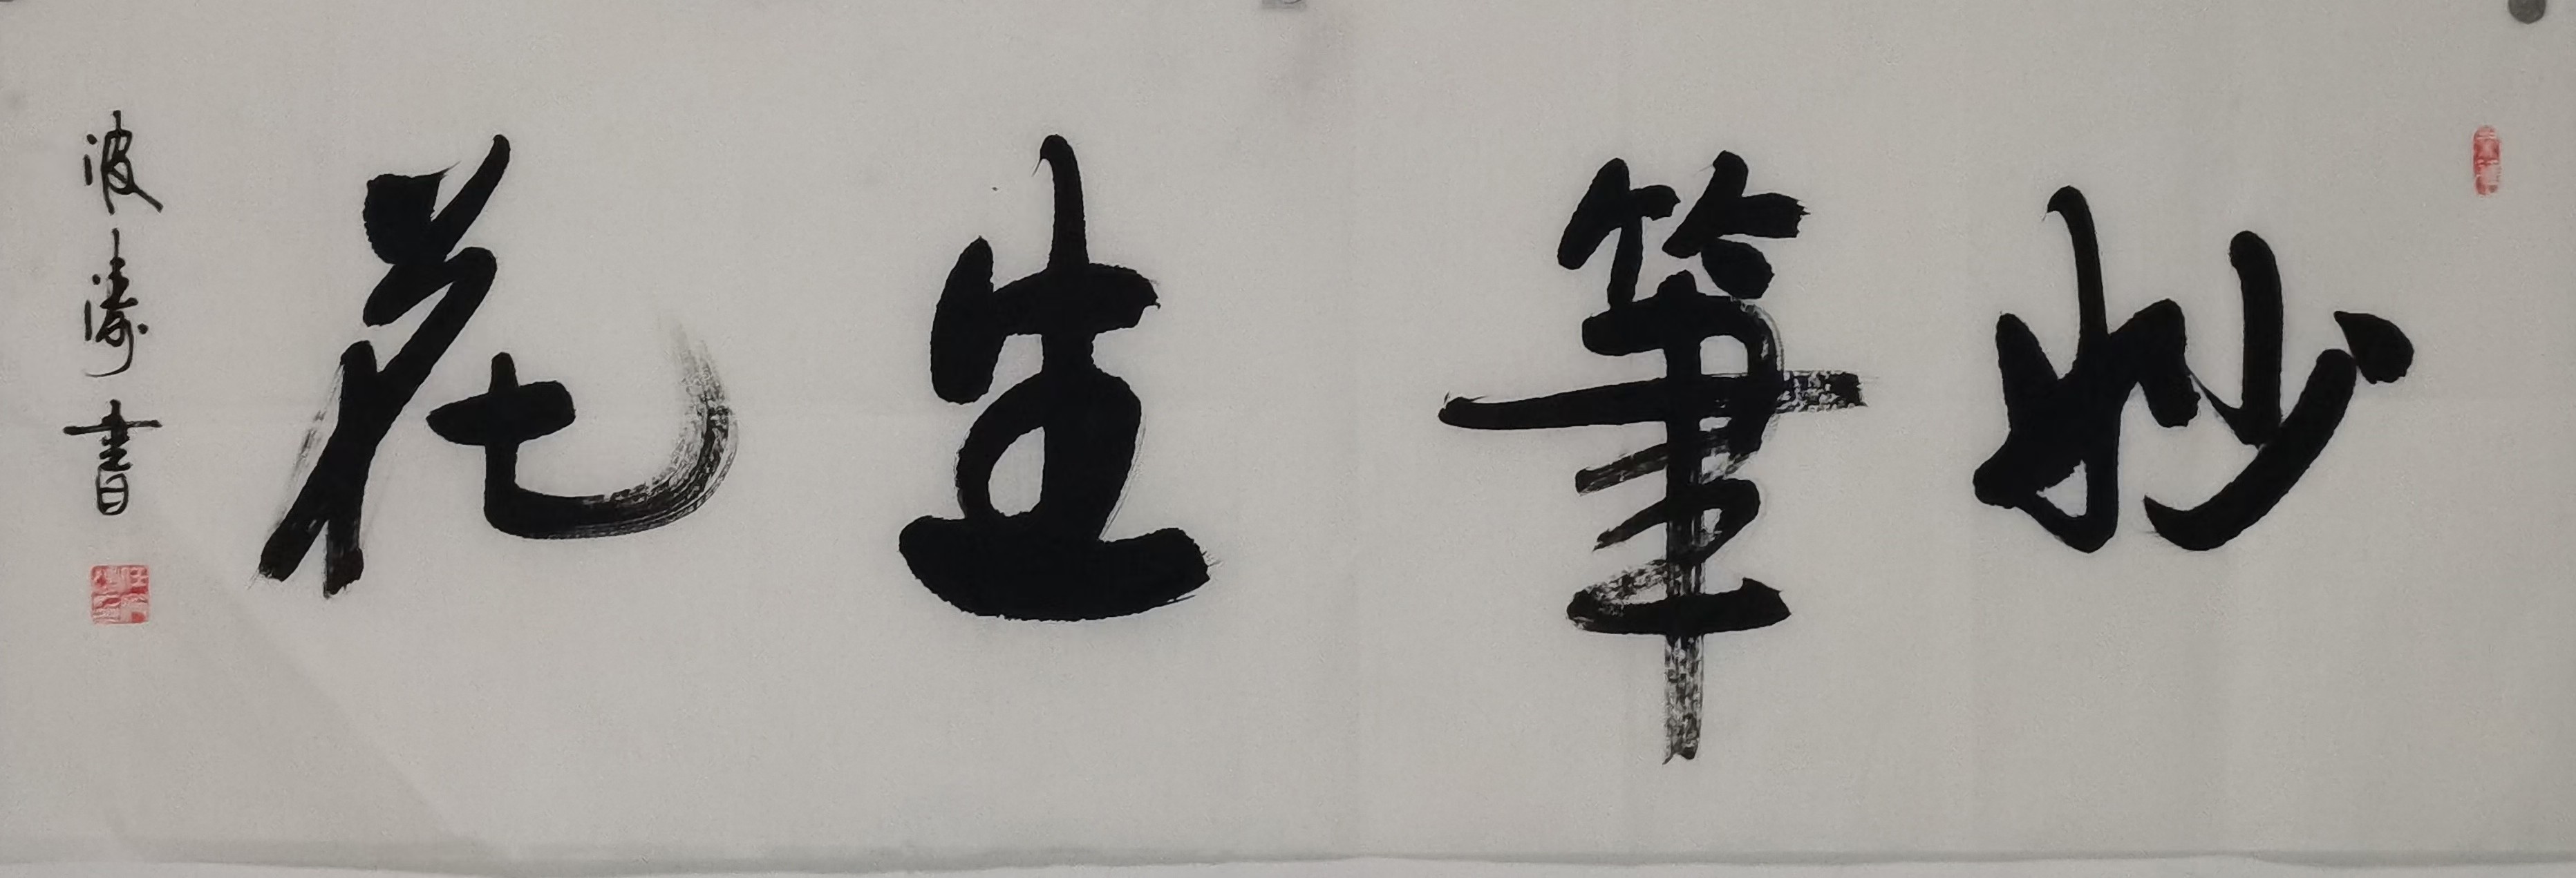 妙筆生花
波濤書